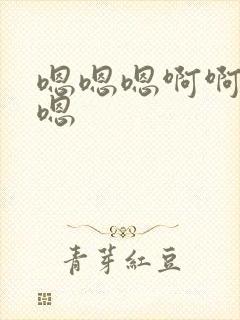 嗯嗯嗯啊啊
嗯
青芽紅豆